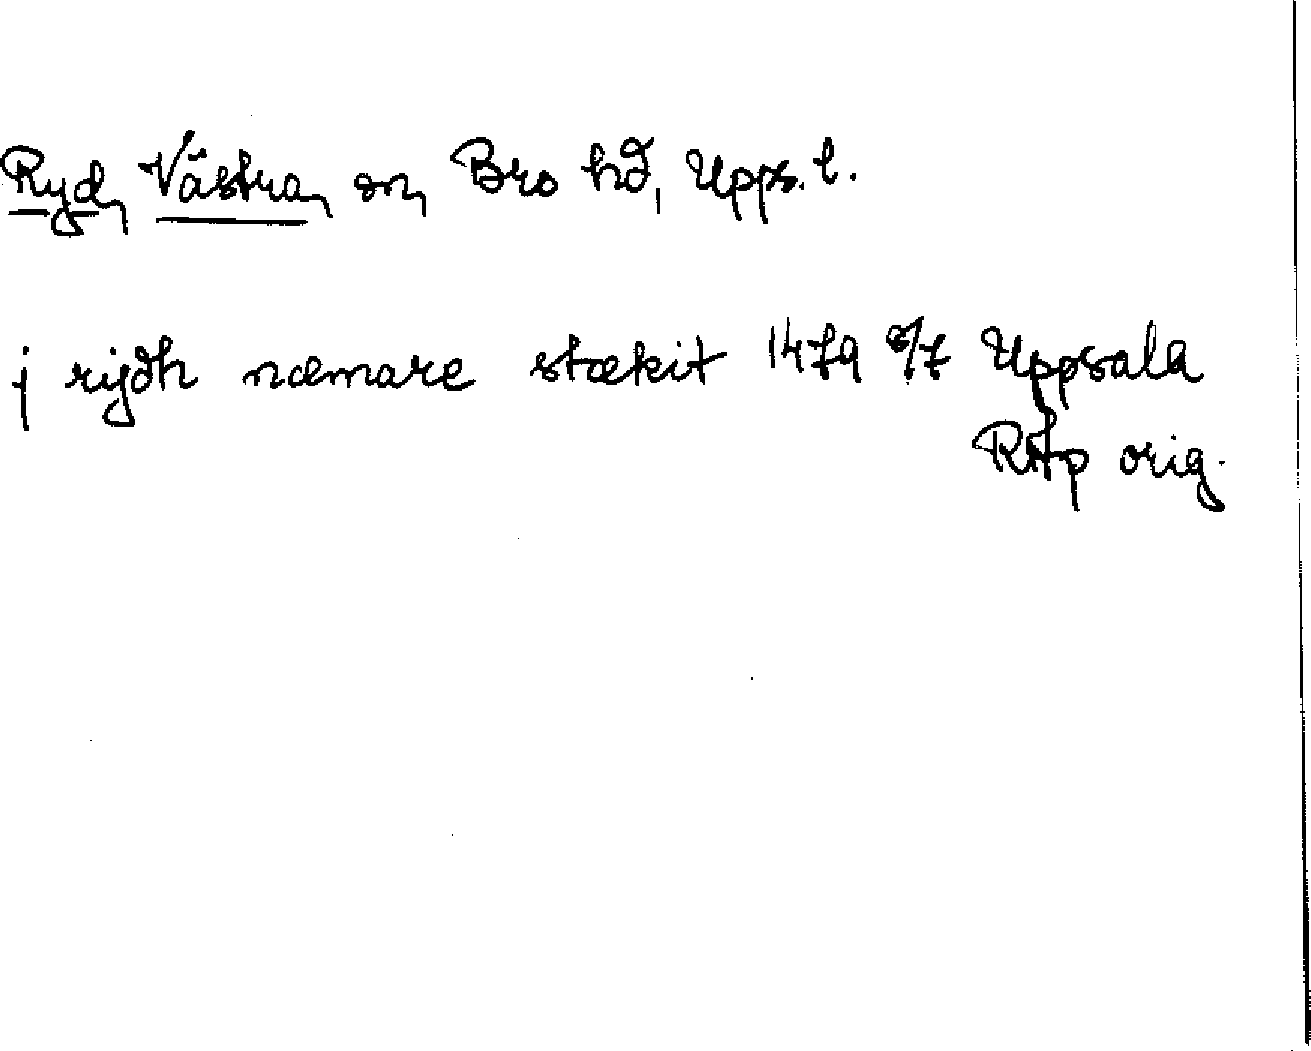 Ryd, Västra, sn, Bro hd, Upps. l.
j rijdh næmare stækit 1479 8/7 Uppsala
RAp orig.